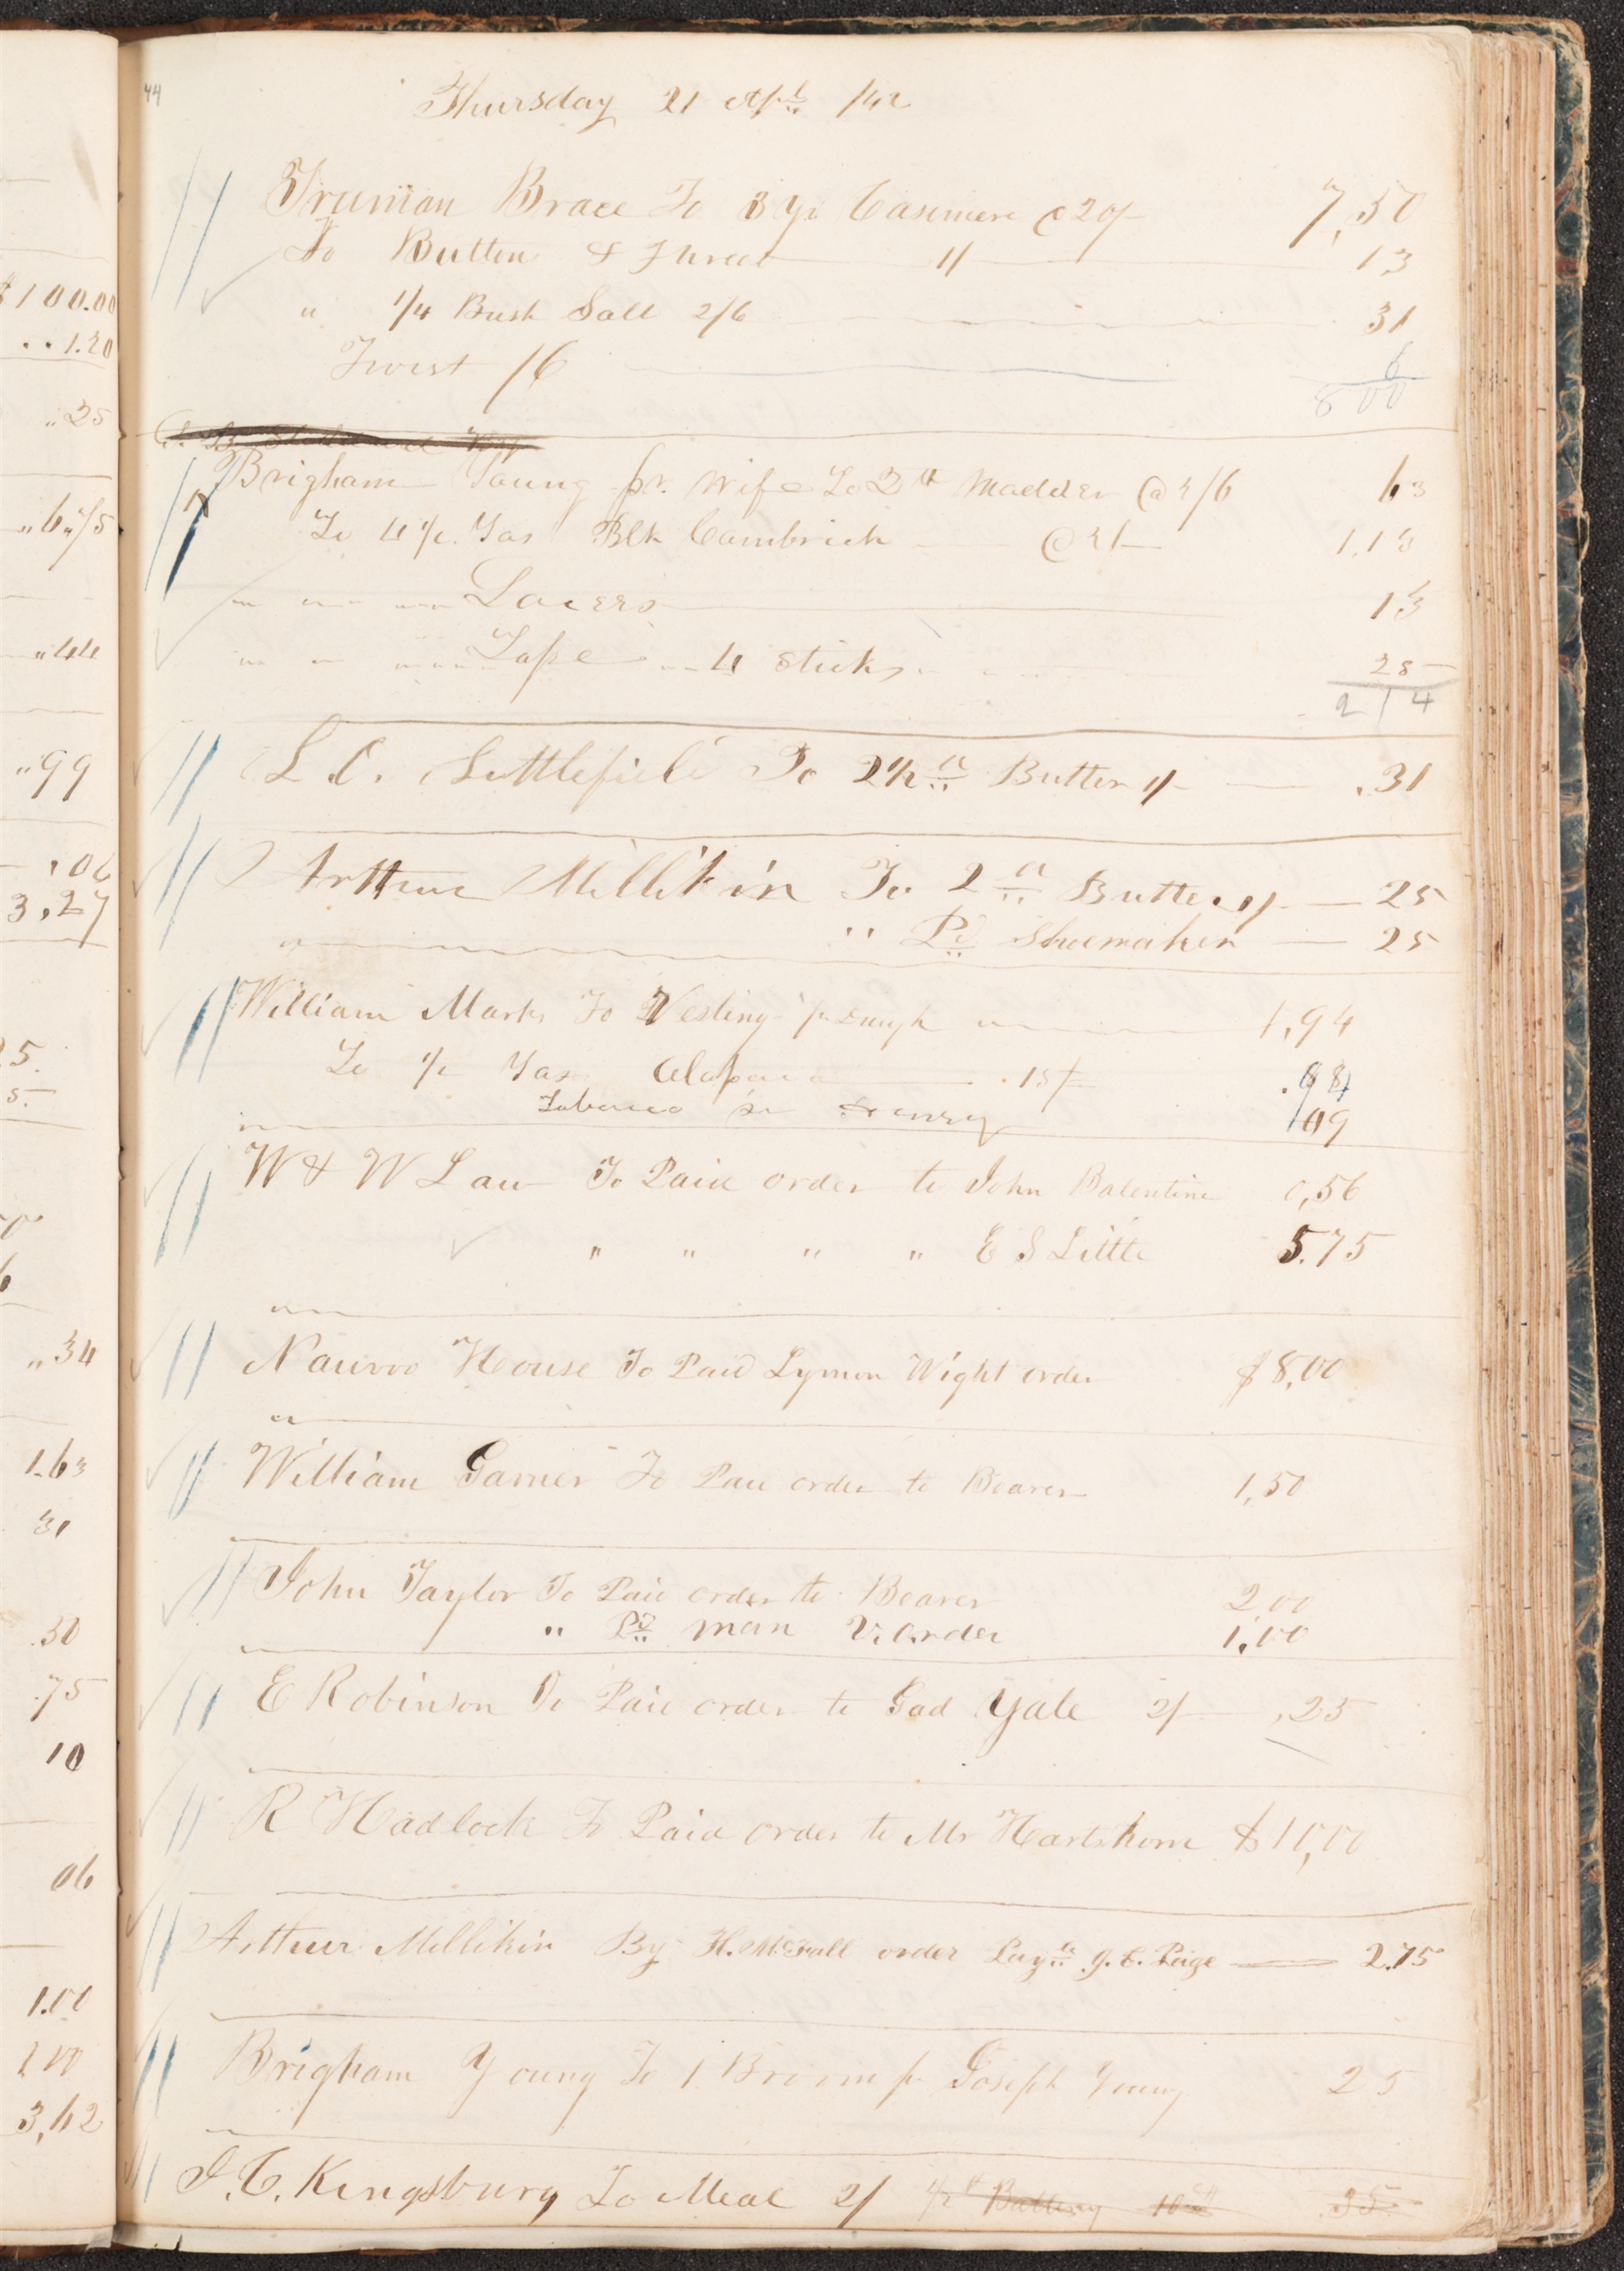 $100.00
1.20
25
6.75
44
99
.06
3.27
34
1.63
31
.50
.75
10
06
1.00
3,62
44
Thursday 21 Apl /42
Truman Brace To 3 Yds Casimere @ 20/- 7,50
To Button & Thread 1/ 13
" 1/4 Bush Salt 2/6 31
Twist /6 6
8 00
Brigham Young pr. Wife To 2 lb Madder @ 2/6 63
To 4 1/2 Yas Blk Cambrick @ 2/- 1.13
Lacers 13
Tape 4 Sticks 25
2 14
L. O. Littlefield To 2 1/2 lb Butter 1/- .31
Arthur Millikin To 2 lb Butter 1/- 25
" Pd Shoemaker 25
William Marks To Vesting pr 1,94
To 1/2 Yas Alapaca 15/-
Tobacco pr Henry 09
W & W Law To Paid order to John Balentine 0,56
" " " " E S Little 5.75
Nauvoo House To Paid Lyman Wight order $8,00
William Garner To Paid order to Bearer 1,50
John Taylor To Paid order to Bearer 2,00
" Pd man V. Order 1,00
E Robinson To Paid order to Gad Yale 2/- ,25
R Hadlock To Paid order to Mr Hartshorn $10,00
Arthur Millikin By H. McFall order J. C. Paige 2.75
Brigham Young To 1 Broom pr Joseph Young 25
J. C. Kingsbury To Meal 2/ 1/2 lb 10 .35